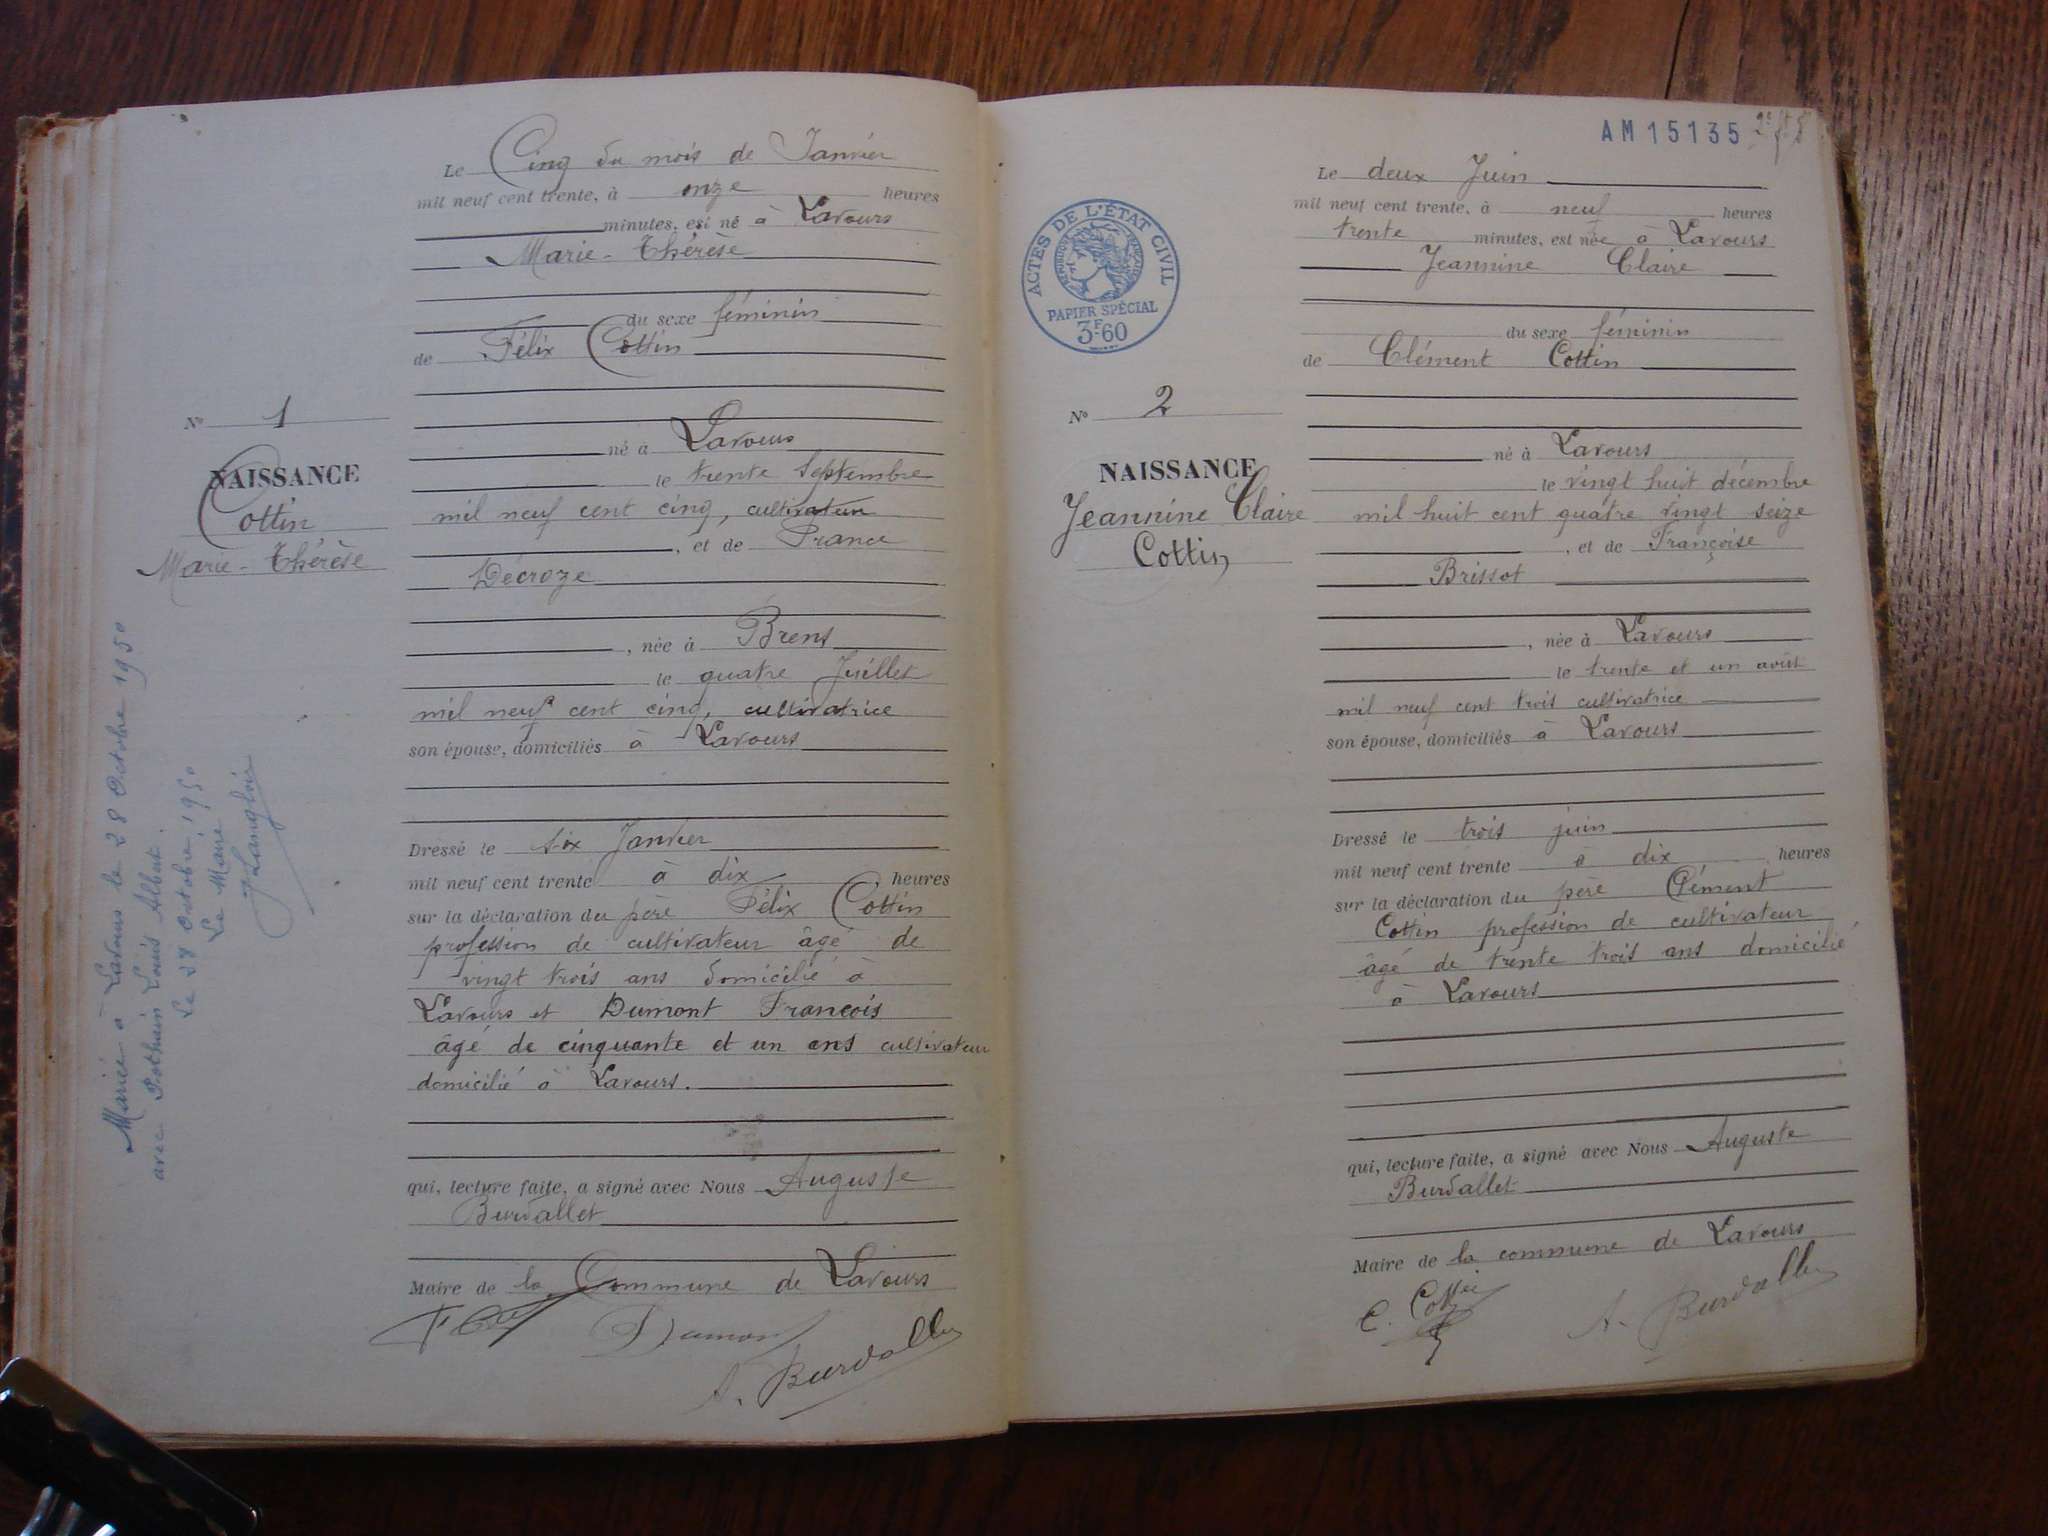 Le Cinq du mois de Janvier
mil neuf cent trente, à onze heures
minutes, est né à Lavours
Marie-Thérèse
du sexe féminin
de Félix Cottin
né à Lavours
le trente Septembre
mil neuf cent cinq, cultivateur
, et de France
Décroze
, née à Brens
le quatre Juillet
mil neuf cent cinq, cultivatrice
son épouse, domiciliés à Lavours
Dressé le six Janvier
mil neuf cent trente à dix heures
sur la déclaration du père Félix Cottin
profession de cultivateur âgé de
vingt trois ans domicilié à
Lavours et Dumont François
âgé de cinquante et un ans cultivateur
domicilié à Lavours.
qui, lecture faite, a signé avec Nous Auguste
Burdallet
Maire de la Commune de Lavours
Dumont
A. Burdallet
No 1
NAISSANCE
Cottin
Marie-Thérèse
Mariée à Lavours le 28 Octobre 1950
avec Pothain Louis Albert.
Le 28 Octobre 1950
Le Maire
J Langlois
AM 15135
ACTES DE L'ÉTAT CIVIL
RÉPUBLIQUE FRANÇAISE
PAPIER SPÉCIAL
3F.60
No 2
NAISSANCE
Jeannine Claire
Cottin
Le deux Juin
mil neuf cent trente, à neuf heures
trente minutes, est née à Lavours
Jeannine Claire
du sexe féminin
de Clément Cottin
né à Lavours
le vingt huit décembre
mil huit cent quatre vingt seize
, et de Françoise
Brissot
, née à Lavours
le trente et un août
mil neuf cent trois cultivatrice
son épouse, domiciliés à Lavours
Dressé le trois juin
mil neuf cent trente à dix heures
sur la déclaration du père Clément
Cottin profession de cultivateur
âgé de trente trois ans domicilié
à Lavours
qui, lecture faite, a signé avec Nous Auguste
Burdallet
Maire de la commune de Lavours
C. Cottin
A. Burdallet